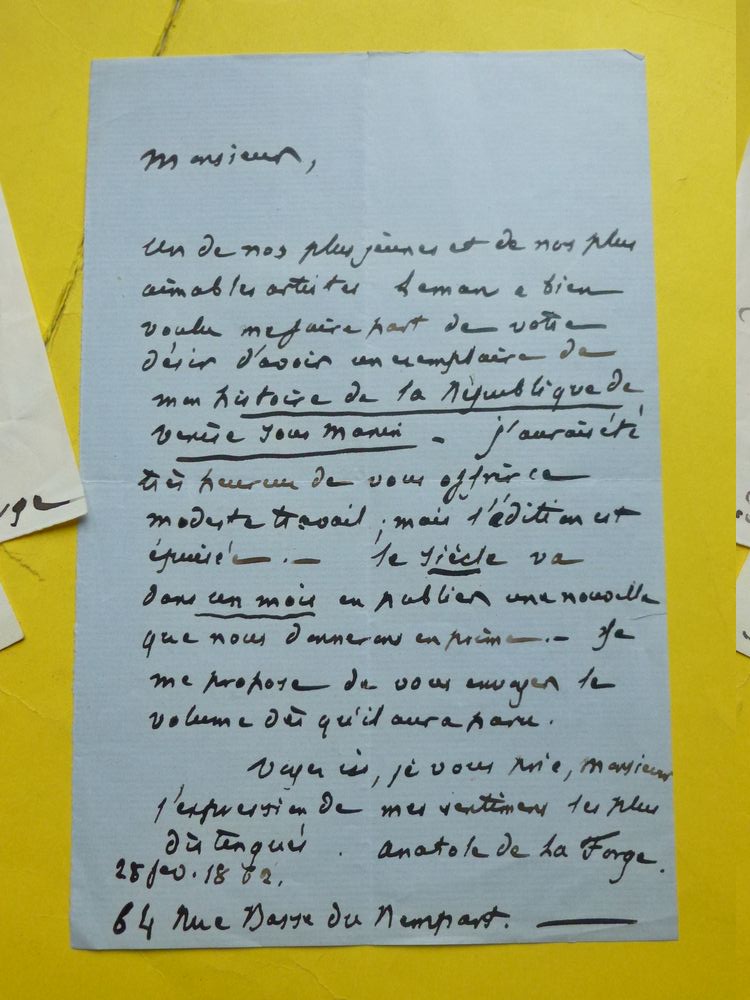 Monsieur,
Un de nos plus jeunes et de nos plus
aimables artistes Leman a bien
voulu me faire part de votre
désir d'avoir un exemplaire de
mon histoire de la République de
Venise sous Manin _ j'aurais été
très heureux de vous offrir ce
modeste travail ; mais l'édition est
épuisée. — le Siècle va
dans un mois en publier une nouvelle
que nous donnerons en prime. — Je
me propose de vous envoyer le
volume dès qu'il aura paru.
Voyez ici, je vous prie, Monsieur
l'expression de mes sentimens les plus
distingués. Anatole de La Forge.
28 fév. 1862.
64 Rue Basse du Rempart. —
rge